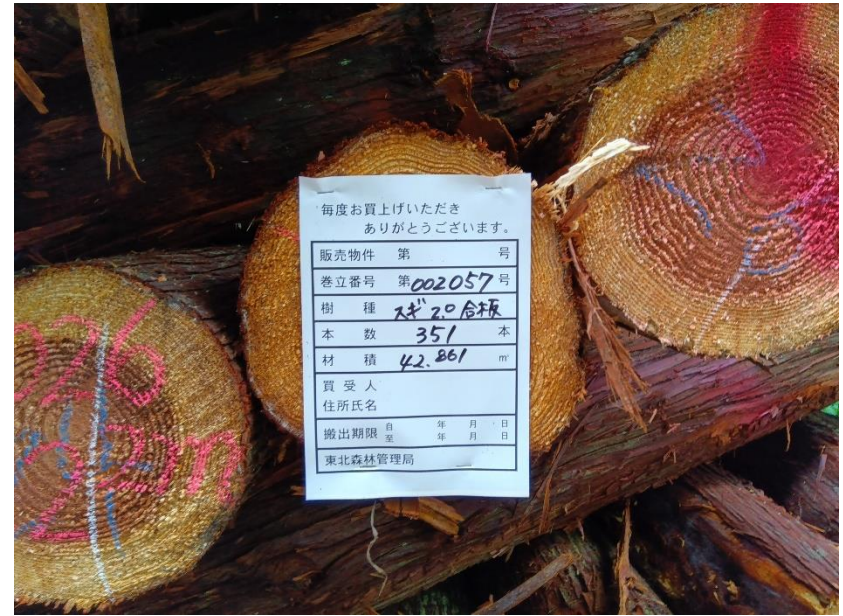 毎度お買上げいただき
ありがとうございます。
販売物件 第 号
巻立番号 第002057号
樹種 スギ 2.0 合板
本数 351 本
材積 42.861 m³
買受人
住所氏名
搬出期限 自 年 月 日
至 年 月 日
東北森林管理局